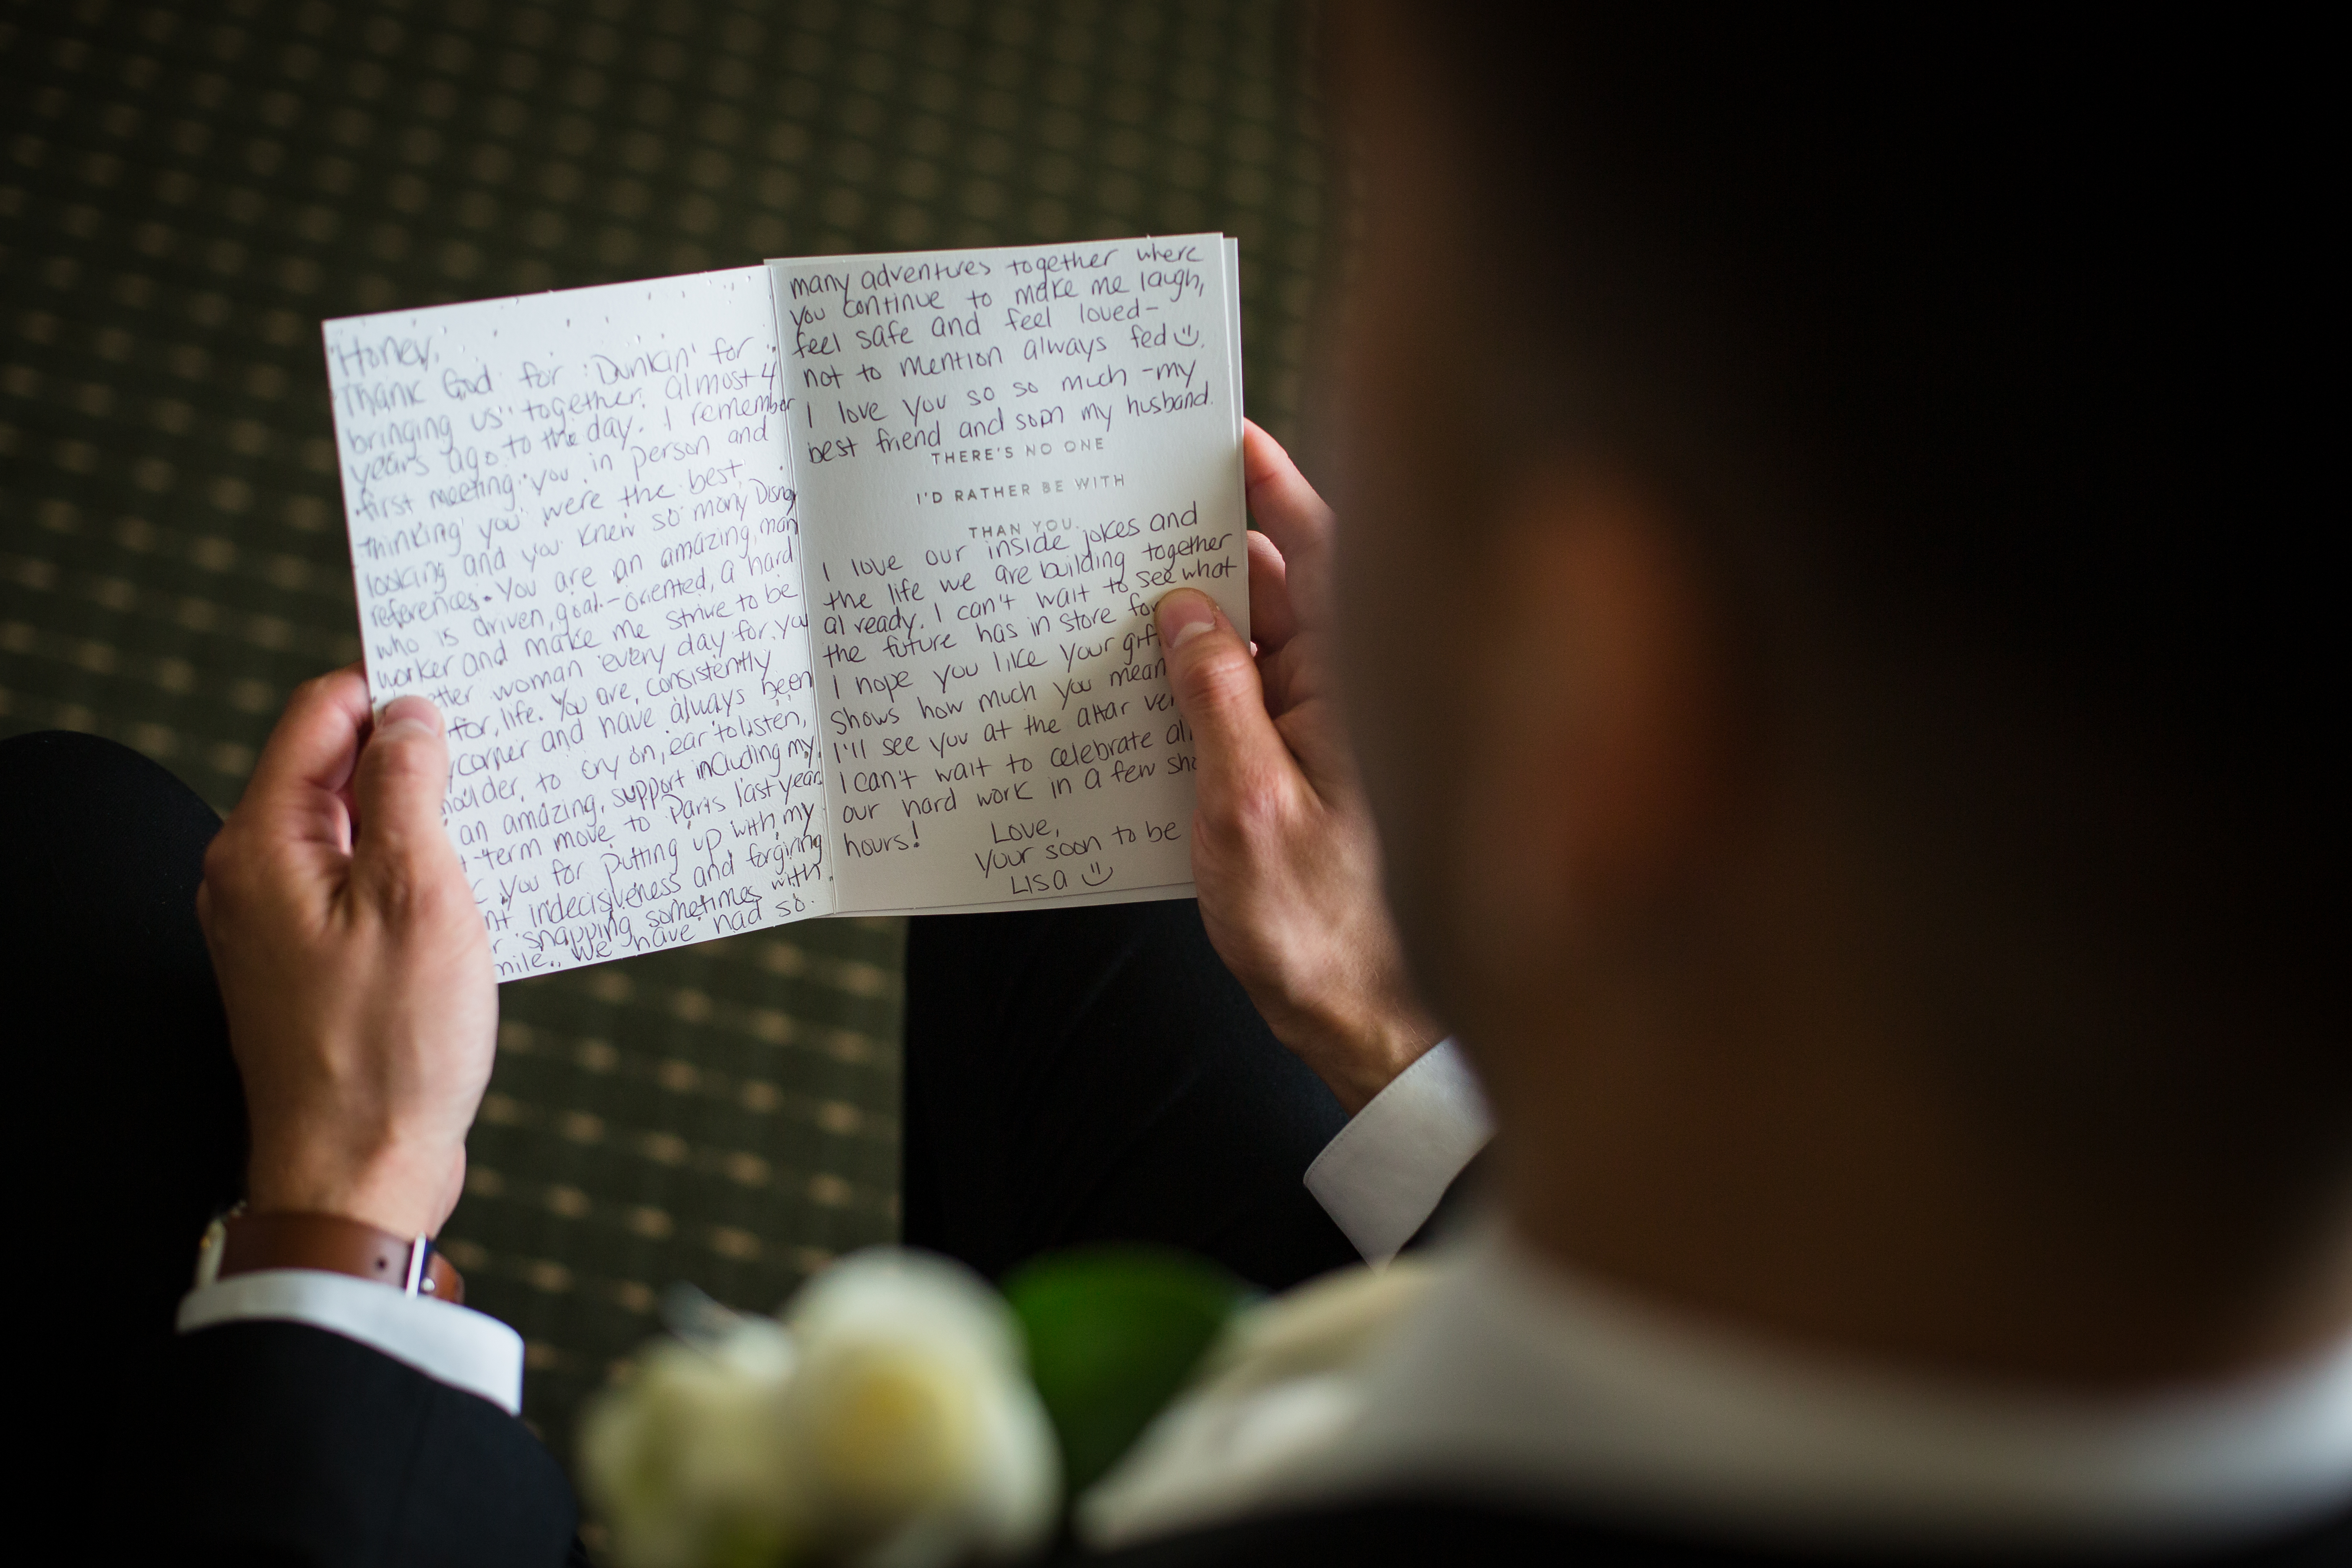 Honey,
Thank God for 'Dunkin' for
bringing us together almost 4
years ago to the day. I remember
first meeting you in person and
thinking you were the best
looking and you knew so many Disney
references. You are an amazing man
who is driven, goal-oriented, a hard
worker and make me strive to be
better woman every day for you
for life. You are consistently
corner and have always been
houlder to cry on, ear to listen,
an amazing support including my
t-term move to Paris last year
you for putting up with my
nt indecisiveness and forgiving
r snapping sometimes with
mile. We have had so
many adventures together where
you continue to make me laugh,
feel safe and feel loved-
not to mention always fed
I love you so so much - my
best friend and soon my husband.
THERE'S NO ONE
I'D RATHER BE WITH
THAN YOU.
I love our inside jokes and
the life we are building together
already. I can't wait to see what
the future has in store for
I hope you like your gift
shows how much you mean
I'll see you at the altar ver
I can't wait to celebrate al
our hard work in a few sho
hours!
Love,
your soon to be
Lisa